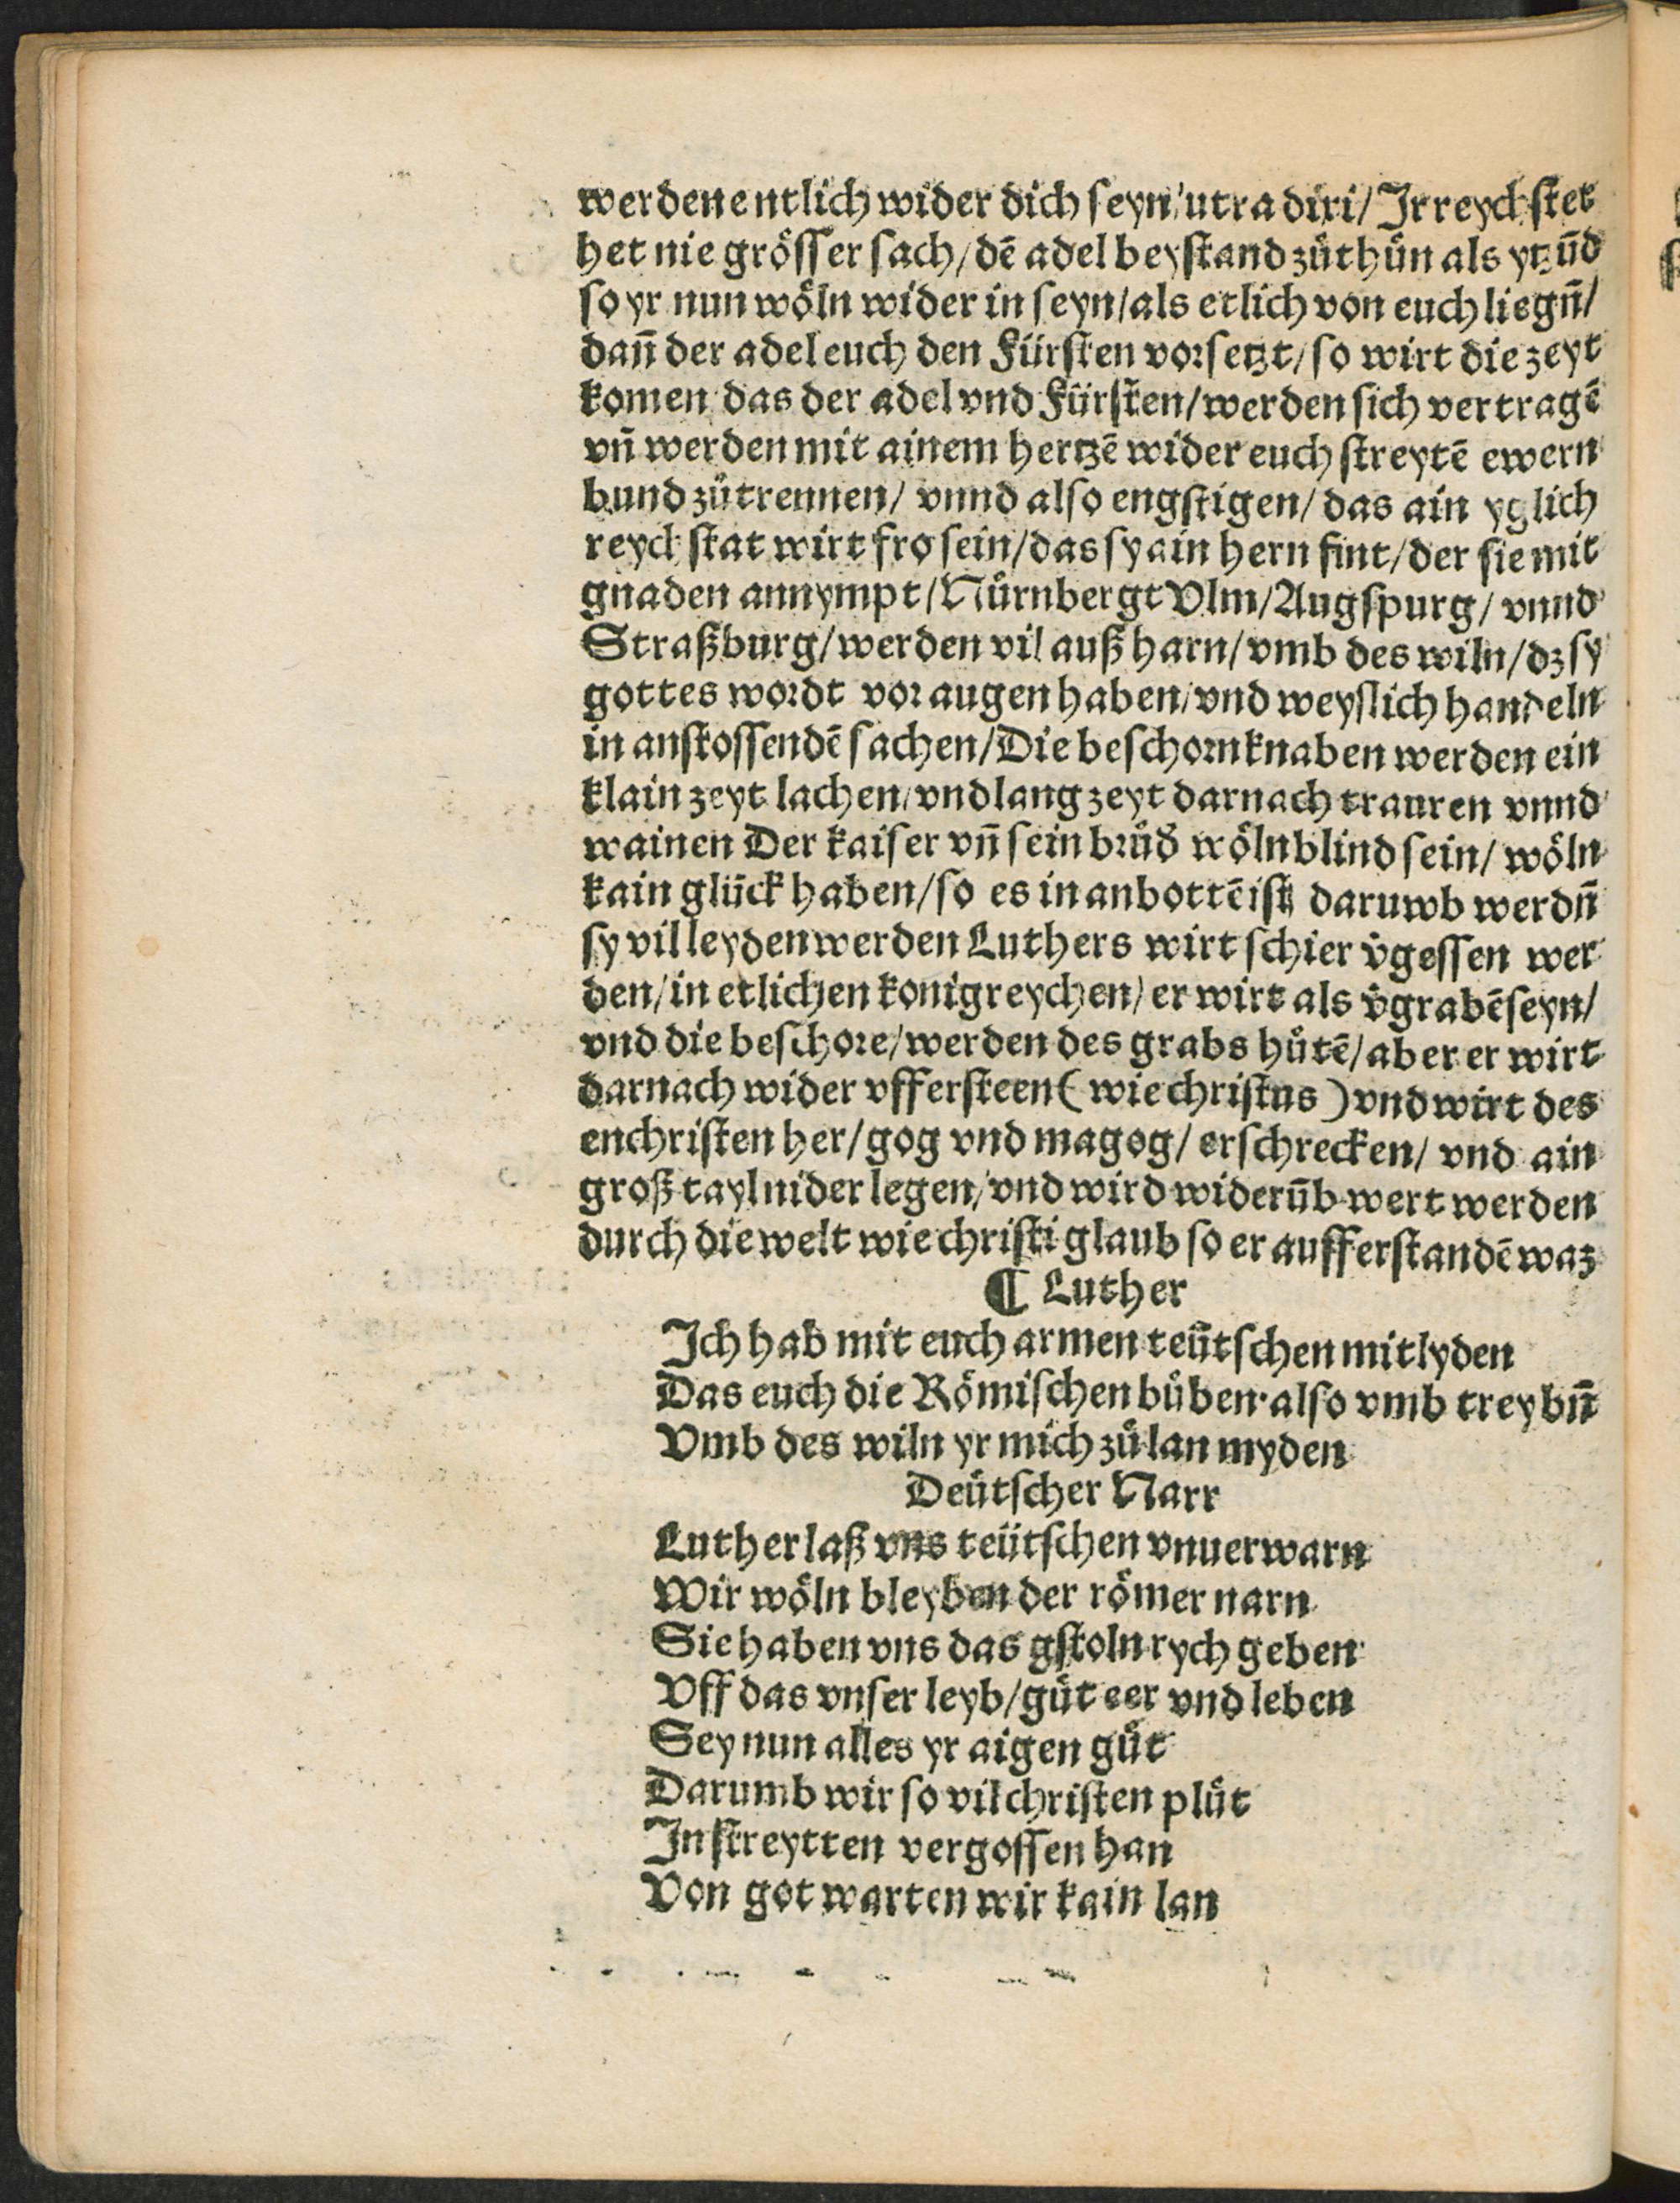 werden entlich wider dich seyn/ut ra dixi/Ir reych stet
het nie grösser sach/dē adel beystand zůthůn als ytzūd
so yr nun wöln wider in seyn/als etlich von euch liegn̄/
dan̄ der adel euch den Fürsten vorsetzt/so wirt die zeyt
komen das der adel vnd Fürsten/werden sich vertragē
vn̄ werden mit ainem hertzē wider euch streytē ewern
bund zůtrennen/ vnnd also engstigen/das ain yglich
reych stat wirt fro sein/das sy ain hern fint/der sie mit
gnaden annympt/Nürnbergt Vlm/Augspurg/ vnnd
Straßburg/werden vil auß harn/vmb des wiln/dz sy
gottes wordt vor augen haben/vnd weyslich handeln
in anstossendē sachen/Die beschorn knaben werden ein
klain zeyt lachen/vnd lang zeyt darnach trauren vnnd
wainen Der kaiser vn̄ sein brůd̓ wöln blind sein/ wöln
kain glück haben/so es in anbottē ist darumb werdn̄
sy vil leyden werden Luthers wirt schier v̓gessen wer
den/in etlichen konigreychen/er wirt als v̓grabē seyn/
vnd die beschore/werden des grabs hůtē/aber er wirt
darnach wider vffersteen (wie christus) vnd wirt des
enchristen her/gog vnd magog/ erschrecken/ vnd ain
groß tayl niderlegen/vnd wird widerūb wert werden
durch die welt wie christi glaub so er aufferstandē waz
¶ Luther
Ich hab mit euch armen teütschen mitlyden
Das euch die Römischen bůben also vmb treybn̄
Vmb des wiln yr mich zů lan myden
Deütscher Narr
Luther laß vns teütschen vnuerwarn
Wir wöln bleyben der römer narn
Sie haben vns das gstoln rych geben
Vff das vnser leyb/gůt eer vnd leben
Sey nun alles yr aigen gůt
Darumb wir so vil christen plůt
In streytten vergossen han
Von got warten wir kain lan